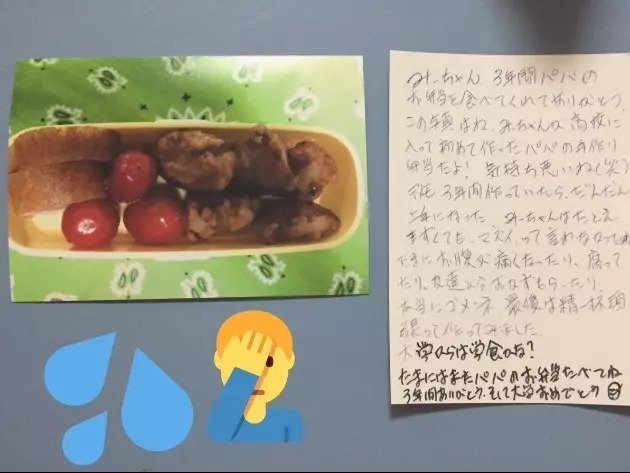 みーちゃん 3年間パパの
お弁当を食べてくれてありがとう。
この写真はね、みーちゃんが高校に
入って初めて作ったパパの手作り
弁当だよ! 気持ち悪いね(笑)
でも 3年間作っていたら、だんだん
上手になった みーちゃんはたとえ
まずくても、マズイって言わなかったね
たまにお腹が痛くなったり、腐って
たり、友達からおかずもらったり、
本当にゴメンネ 最後は精一杯頑
張って作ってみました。
大学からは学食かな?
たまにはまたパパのお弁当たべてね
3年間ありがとう、そして大学おめでとう